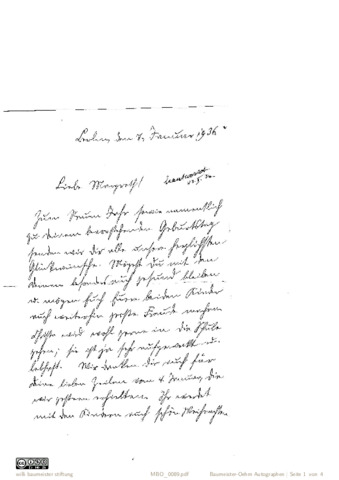 Berlin, den 7. Januar 1936
beantwortet
Liebe Margreth!
Zum Neuen Jahr sowie namentlich
zu Deinem bevorstehenden Geburtstag
senden wir Dir alle unsere herzlichsten
Glückwünsche. Mögest Du mit den
Deinen besonders auch gesund bleiben
u. mögen Euch Eure beiden Kinder
auch weiterhin große Freude machen.
wird wohl gerne in die Schule
gehen; sie ist ja sehr aufgeweckt u.
lebhaft. Wir danken Dir auch für
Deine lieben Zeilen vom 4. Januar, die
wir gestern erhalten. Ihr werdet
mit den Kindern auch schöne Weihnachten
willi baumeister stiftung
MBO_0089.pdf
Baumeister-Oehm Autographen : Seite 1 von 4